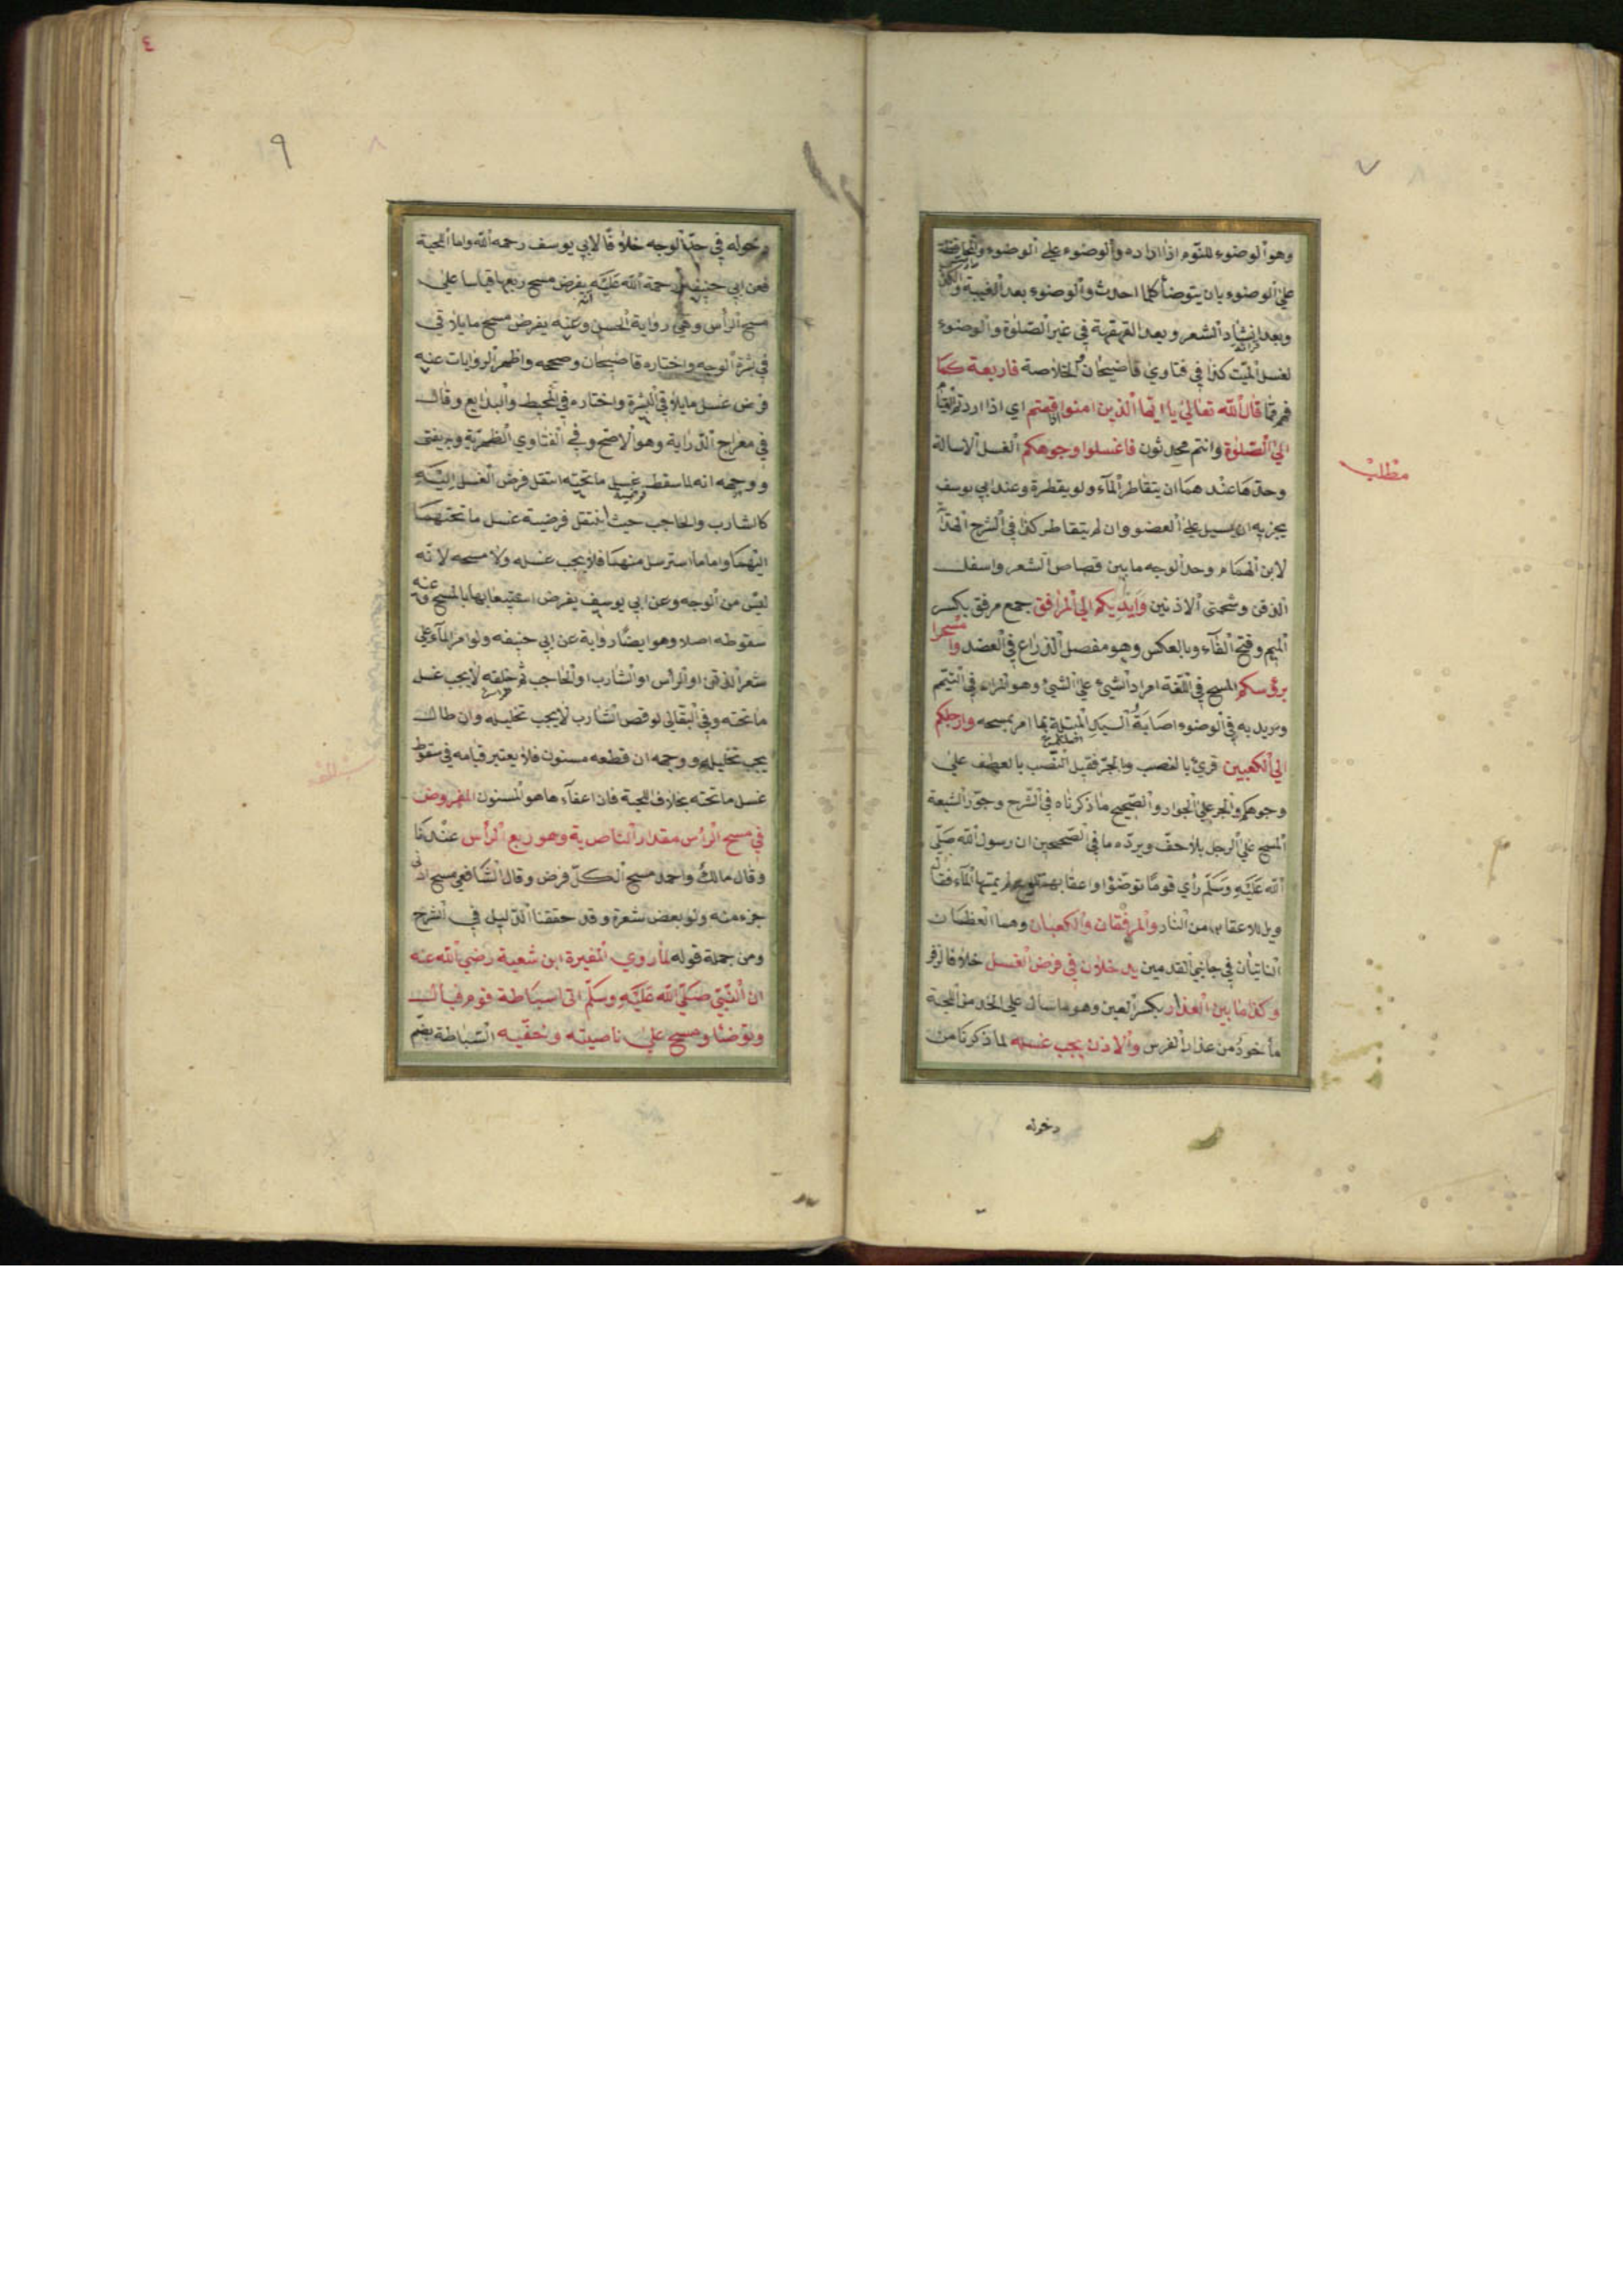 ٧
وهو الوضوء للنوم اذا اراده والوضوء علي الوضوء والمحافظة
علي الوضوء بان يتوضأ كلما احدث والوضوء بعد الغيبة والكذب
وبعد انشاد الشعر وبعد القهقهة في غير الصلوة والوضوء
لغسل الميت كذا في فتاوي قاضيخان والخلاصة فاربعة كما
قال الله تعالي يا ايها الذين امنوا اذا قمتم اي اذا اردتم القيام
الي الصلوة وانتم محدثون فاغسلوا وجوهكم الغسل الاسالة
مطلب
وحدها عندهما ان يتقاطر الماء ولو بقطرة وعند ابي يوسف
يجزيه ان يسيل علي العضو وان لم يتقاطر كذا في الشرح
لابن الهمام وحد الوجه ما بين قصاص الشعر واسفل
الذقن وشحمتي الاذنين وايديكم الي المرافق جمع مرفق بكسر
الميم وفتح الفاء وبالعكس وهو مفصل الذراع في العضد وامسحوا
برؤسكم المسح في اللغة امرار الشيئ علي الشيئ وهو المراد في التيمم
ونريد به في الوضوء اصابة اليد المبتلة بما امر بمسحه وارجلكم
الي الكعبين قرئ بالنصب وبالجر فقيل النصب بالعطف علي
وجوهكم والجر علي الجوار والصحيح ما ذكرناه في الشرح وجوز الشيعة
المسح علي الرجل بلا خف ويرده ما في الصحيحين ان رسول الله صلي
الله عليه وسلم رأي قوما توضؤا واعقابهم تلوح لم يمسها الماء فقال
ويل للاعقاب من النار والمرفقان والكعبان وهما العظمان
الناتيان في جانبي القدمين يدخلان في فرض الغسل خلافا لزفر
وكذا ما بين العذار بكسر العين وهو ما سال علي الخد من اللحية
مأخوذ من عذار الفرس والاذن يجب غسله لما ذكرنا من
دخوله
٩
دخوله في حد الوجه خلافا لابي يوسف رحمه الله واما اللحية
فعن ابي حنيفة رحمة الله عليه يفرض مسح ربعها قياسا علي
مسح الرأس وهي رواية الحسن وعنه انه يفرض مسح ما يلاقي
بشرة الوجه واختاره قاضيخان وصححه واظهر الروايات عنه
فرض غسل ما يلاقي البشرة واختاره في المحيط والبدايع وقال
في معراج الدراية وهو الاصح وفي الفتاوي الظهيرية وبه يفتي
ووجهه انه لما سقط غسل ما تحته انتقل فرض الغسل اليه
كالشارب والحاجب حيث انتقل فرضية غسل ما تحتهما
اليهما واما ما استرسل منهما فلا يجب غسله ولا مسحه لانه
ليس من الوجه وعن ابي يوسف يفرض استيعابها بالمسح وعنه
سقوطه اصلا وهو ايضا رواية عن ابي حنيفه ولو امر الماء علي
شعر الذقن او الرأس او الشارب او الحاجب ثم حلقه لا يجب غسل
ما تحته وفي البقالي لو قص الشارب لا يجب تخليله وان طال
يجب تخليله ووجهه ان قطعه مسنون فلا يعتبر قيامه في سقوط
غسل ما تحته بخلاف اللحية فان اعفاءها هو المسنون المفروض
في مسح الرأس مقدار الناصية وهو ربع الرأس عندنا
وقال مالك واحمد مسح الكل فرض وقال الشافعي مسح ادني
جزء منه ولو بعض شعرة وقد حققنا الدليل في الشرح
ومن جملة قوله لما روي المغيرة ابن شعبة رضي الله عنه
ان النبي صلي الله عليه وسلم اتي سباطة قوم فبال
وتوضأ ومسح علي ناصيته وخفيه السباطة بضم